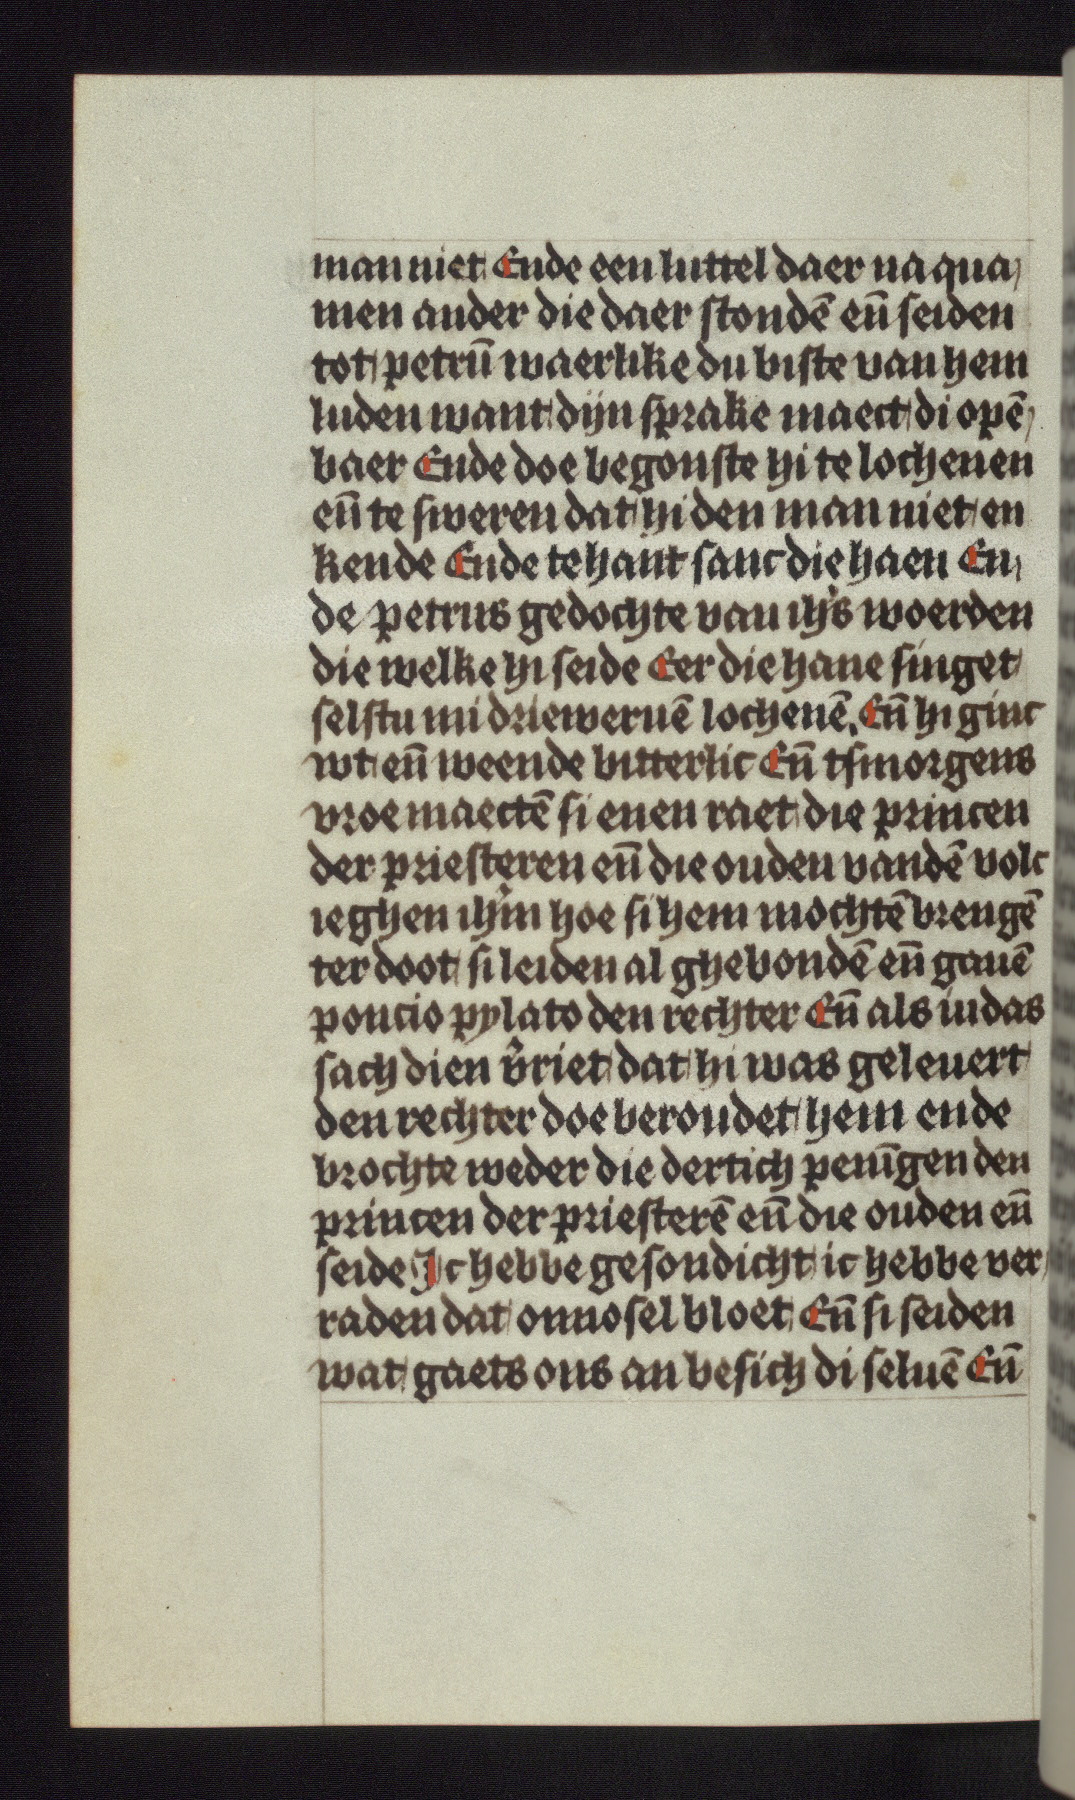 man niet Ende een luttel daer na qua
men ander die daer stondē eñ seiden
tot petrū waerlike du biste van hem
luden want dijn sprake maect di opē
baer Ende doe begonste hi te lochenen
eñ te sweren dat hi den man niet en
kende Ende te hant sanc die haen En
de petrus gedochte van ih's woerden
die welke hi seide Eer die hane singet
selstu mi driewernē lochenē. Eñ hi ginc
wt eñ weende bitterlic Eñ tsmorgens
vroe maectē si enen raet die princen
der priesteren eñ die ouden vandē volc
ieghen ih'm hoe si hem mochtē brengē
ter doot si leiden al ghebondē eñ gauē
poncio pylato den rechter Eñ als iudas
sach dien v'riet dat hi was geleuert
den rechter doe beroudet hem ende
brochte weder die dertich penīgen den
princen der priesterē eñ die ouden eñ
seide Ic hebbe gesondicht ic hebbe ver
raden dat onnosel bloet Eñ si seiden
wat gaets ons an besich di seluē Eñ